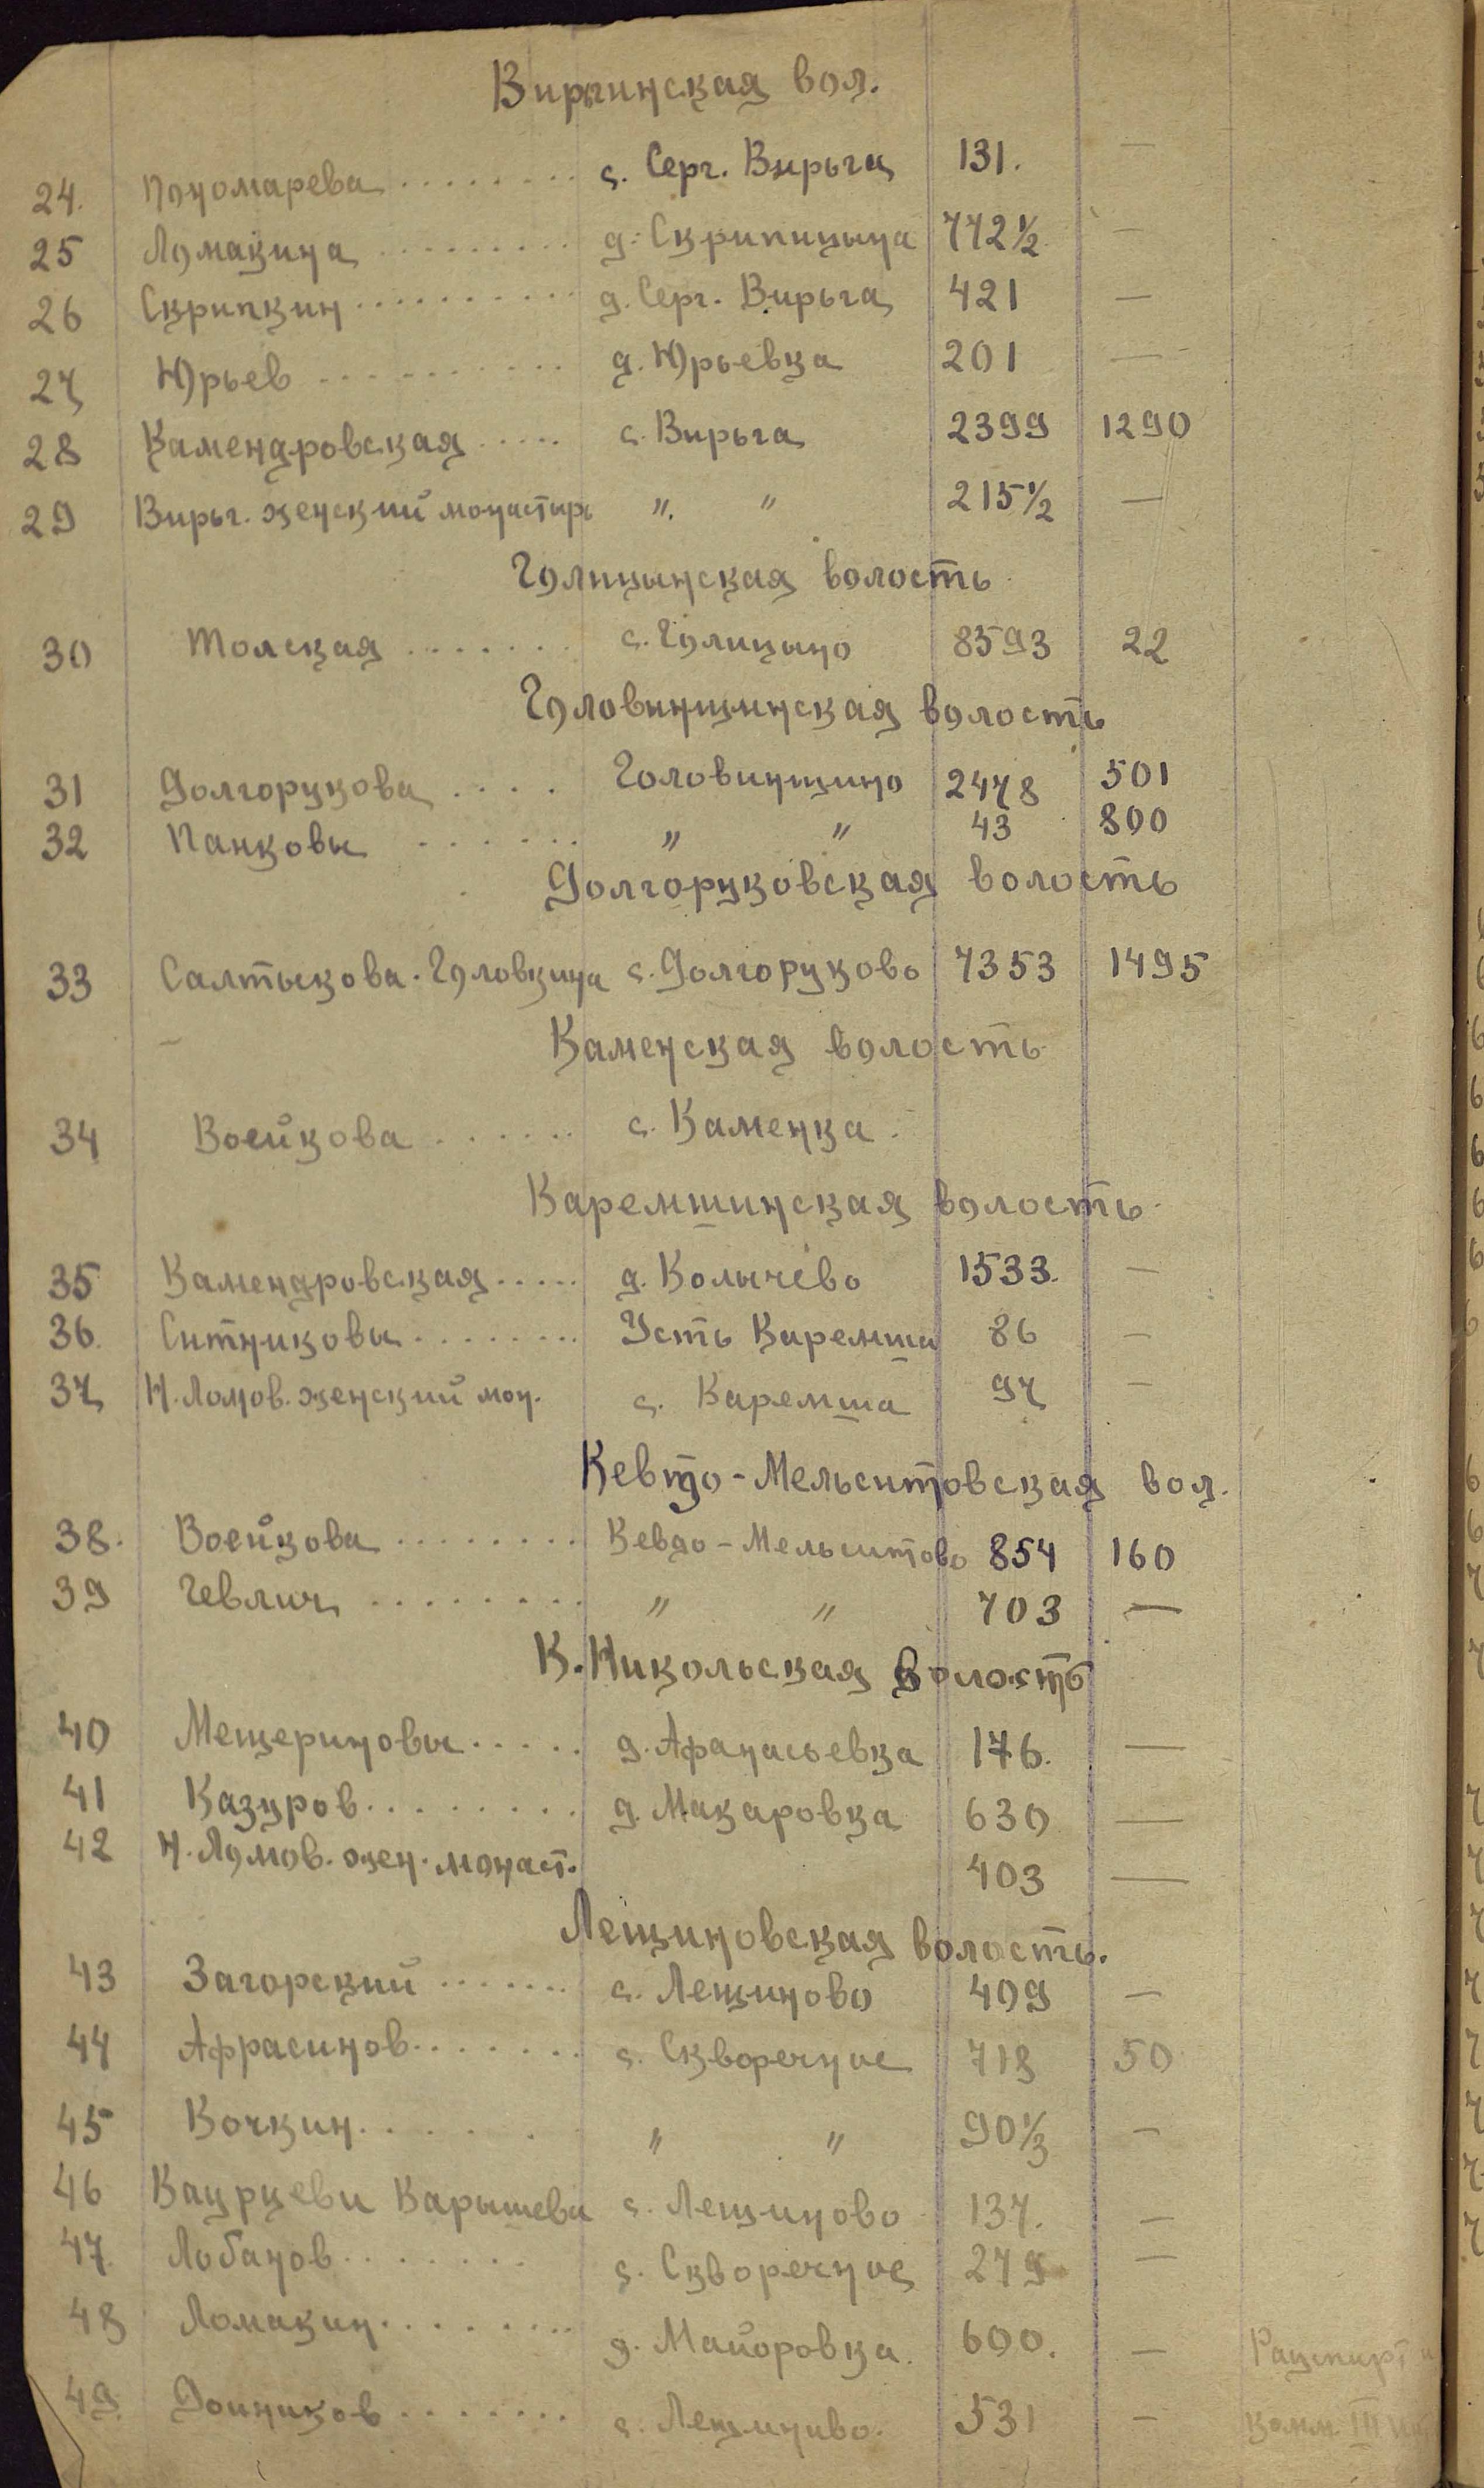 Вирьгинская вол.
24. Пономарева ........ с. Серг. Вирьга 131. —
25 Ломакина ......... д. Скрипицына 772½ —
26 Скрипкин .......... д. Серг. Вирьга 421 —
27 Юрьев .......... д. Юрьевка 201 —
28 Камендровская ..... с. Вирьга 2399 1290
29 Вирьг. женский монастирь " " 215½ —
Голицынская волость
30 Толская ....... с. Голицыно 8593 22
Головинщинская волость
31 Долгорукова .... Головинщино 2478 501
32 Панковы ...... " " 43 800
Долгоруковская волость
33 Салтыкова. Головкина с. Долгоруково 7353 1495
Каменская волость
34 Воейкова ...... с. Каменка.
Каремшинская волость
35 Камендровская ..... д. Колычево 1533. —
36. Ситниковы ........ Усть Каремша 86 —
37 Н. Ломов. женский мон. с. Каремша 97 —
Кевдо-Мельситовская вол.
38. Воейкова ........ Кевдо-Мельситово 854 160
39 Гевлич ........ " " 703 —
К. Никольская волость
40 Мещериновы ..... д. Афанасьевка 176. —
41 Казуров ........ д. Макаровка 630 —
42 Н. Ломов. жен. монаст. 403 —
Лещиновская волость.
43 Загорский ....... с. Лещиново 409 —
44 Афрасинов ....... с. Скворечное 718 50
45 Кочкин ...... " " 90⅓ —
46 Карышева с. Лещиново 137. —
47. Лобанов ....... с. Скворечное 279 —
48 Ломакин ........ д. Майоровка. 600. —
49. Дойников ....... с. Лещиниво. 531 —